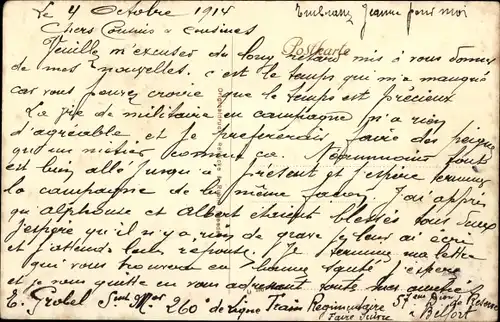 Le 4 Octobre 1914
Embrassez Jeanne pour moi
Chers Cousins & cousines
Postkarte
Veuillez m'excuser du long retard mis à vous donner
de mes nouvelles. c'est le temps qui m'a manqué
car vous pouvez croire que le temps est précieux
La vie de militaire en campagne n'a rien
d'agréable et je prefererais faire des peignes
qu'un métier comme ça. Néanmoins tout
est bien allé jusqu'à présent et j'espère terminer
la campagne de la même façon. J'ai appris
qu'alphonse et Albert étaient blessés tous deux
j'espère qu'il n'y a rien de grave je leur ai écrit
et j'attends leur réponse. Je termine ma lettre
qui vous trouvera en bonne santé j'espère
et je vous quitte en vous adressant toutes mes amitiés
E. 260e de ligne Train Regimentaire 57eme Don de Réserve
Faire Suivre à Belfort